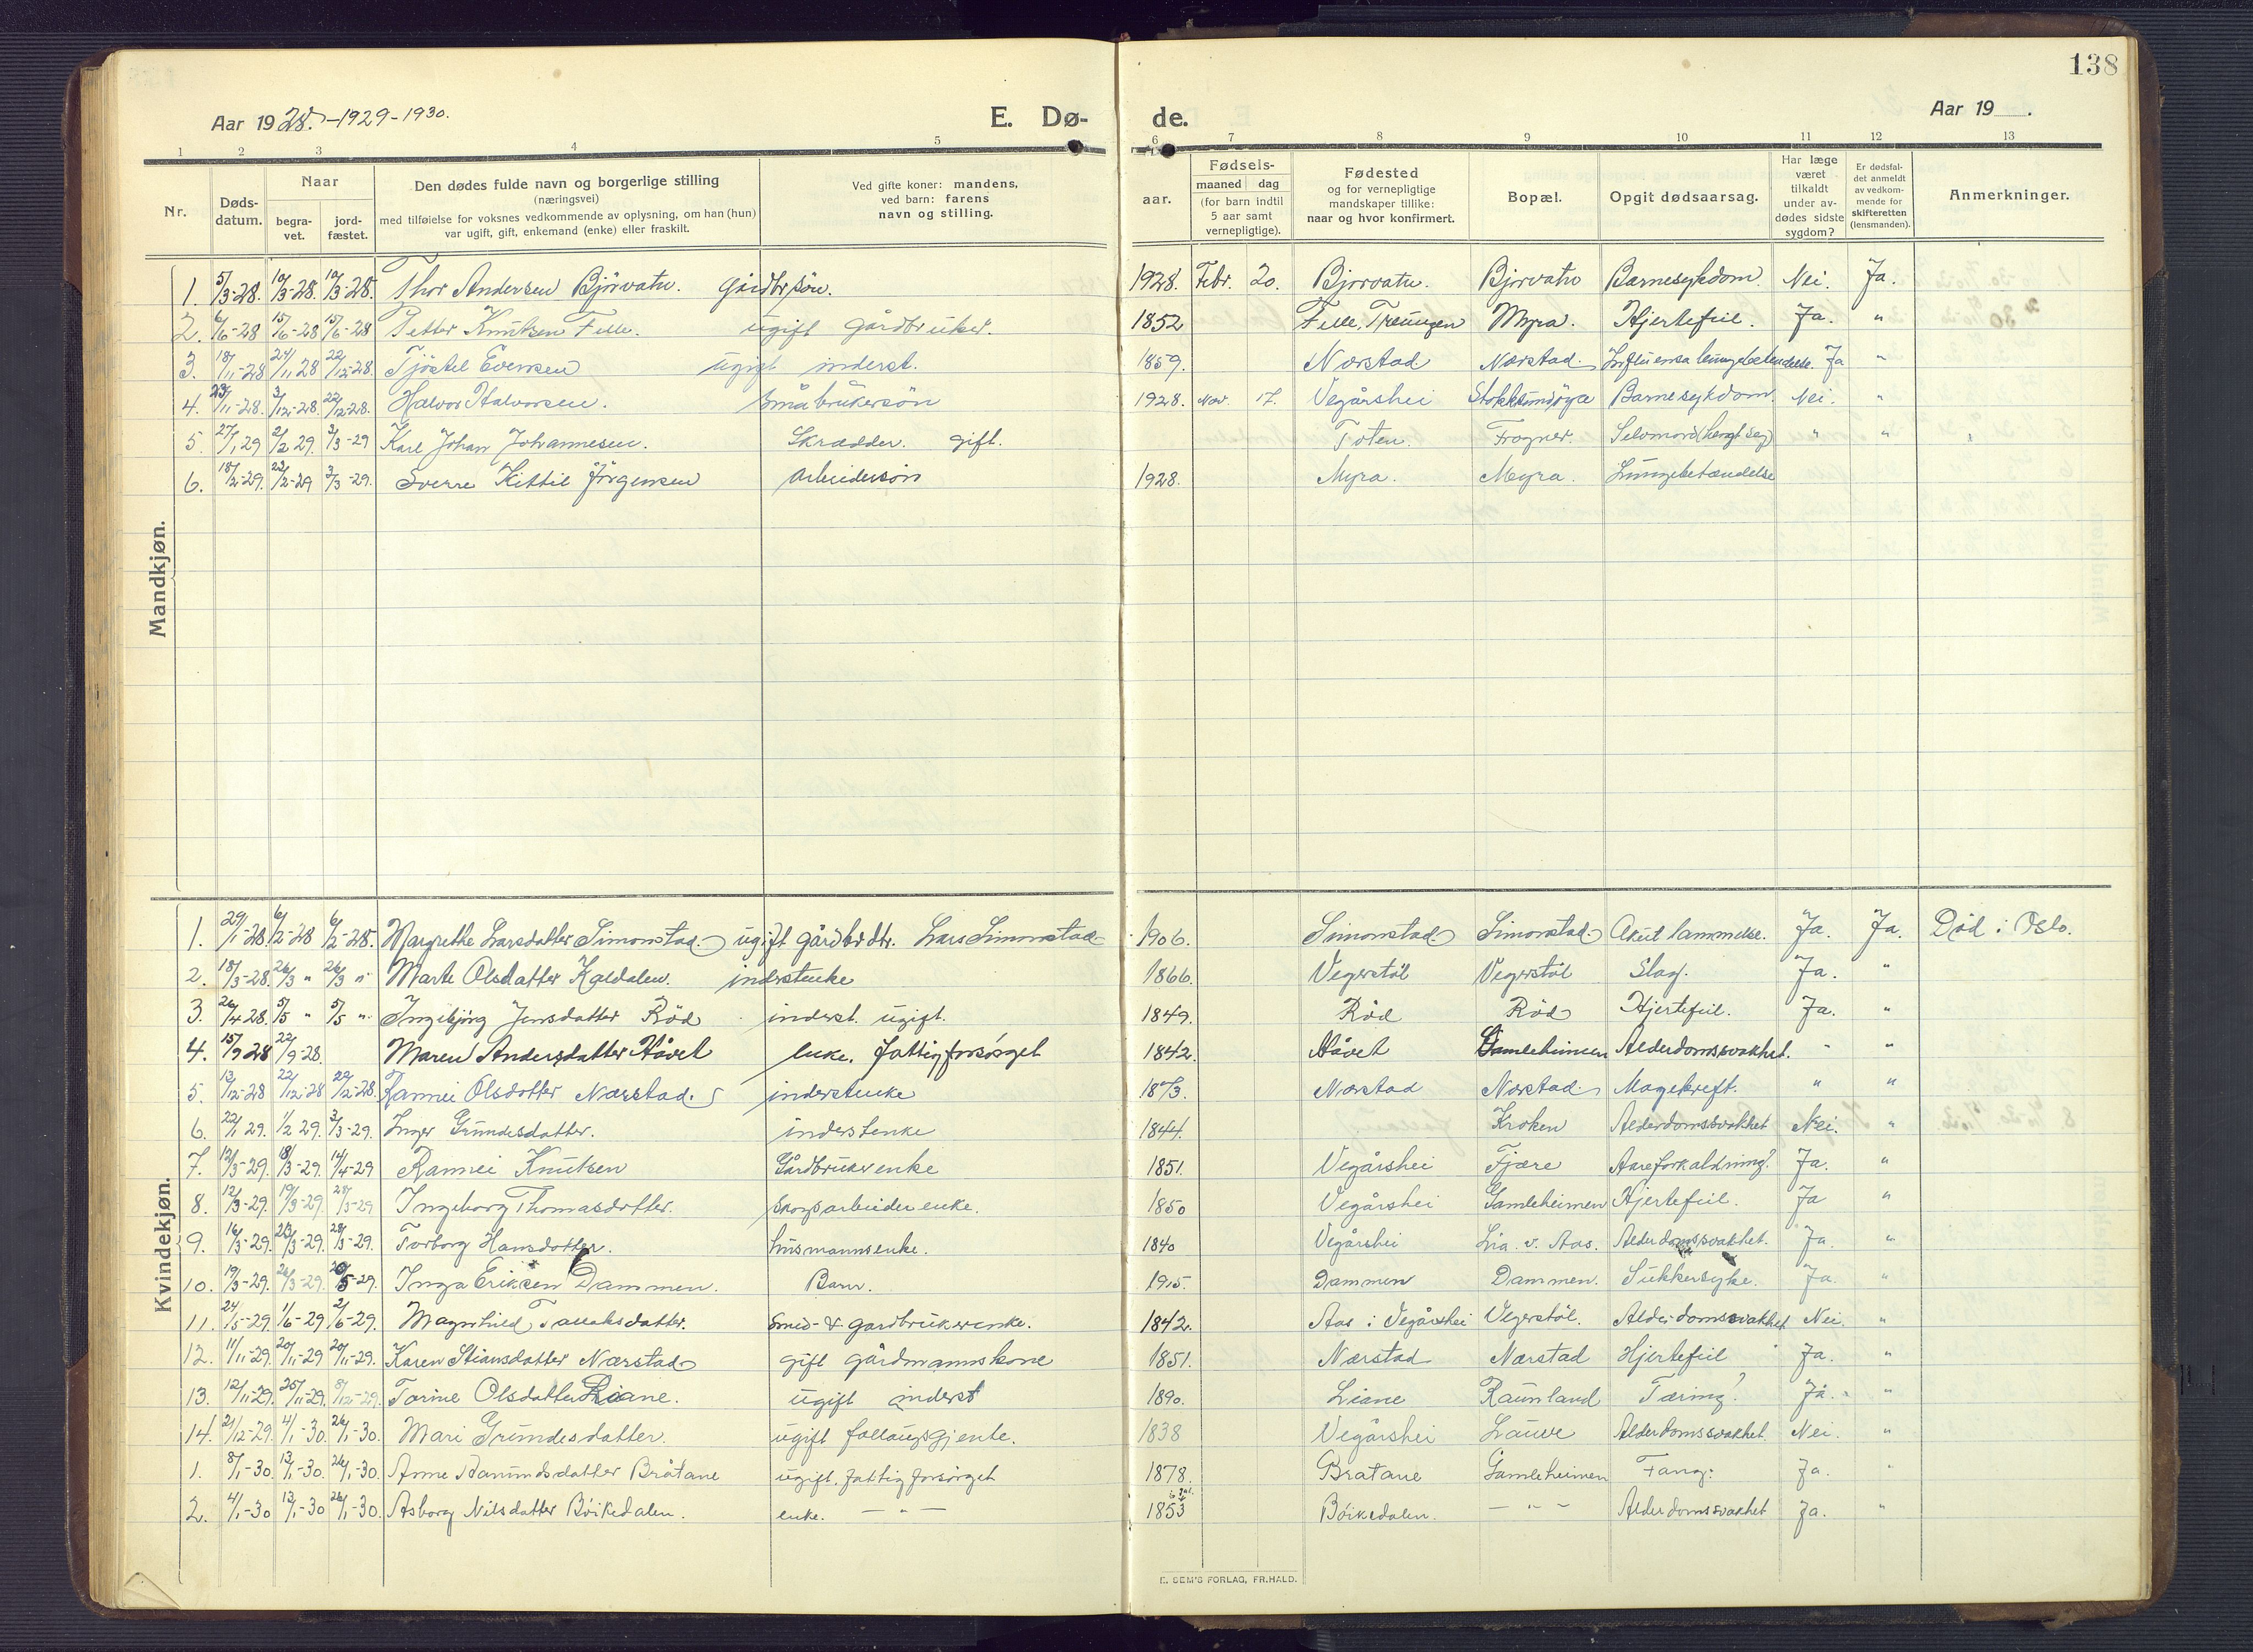 138
Aar 1928.-1929-1930.
E. Dø-
de.
Aar 19 .
1 2 3 4 5 6 7 8 9 10 11 12 13
Nr.
Døds-
datum.
Naar
begra-
vet.
jord-
fæstet.
Den dødes fulde navn og borgerlige stilling
(næringsvei)
med tilføielse for voksnes vedkommende av oplysning, om han (hun)
var ugift, gift, enkemand (enke) eller fraskilt.
Ved gifte koner: mandens,
ved barn: farens
navn og stilling.
aar.
Fødsels-
maaned dag
(for barn indtil
5 aar samt
vernepligtige).
Fødested
og for vernepligtige
mandskaper tillike:
naar og hvor konfirmert.
Bopæl.
Opgit dødsaarsag.
Har læge
været
tilkaldt
under av-
dødes sidste
sygdom?
Er dødsfal-
det anmeldt
av vedkom-
mende for
skifteretten
(lensmanden).
Anmerkninger.
Mandkjøn.
1. 5/3-28. 10/3-28. 10/3-28. Thor Andersen Björvatn. gårdbr.sön. 1928. Febr. 20. Bjorvatn. Bjorvatn Barnesykdom. Nei. Ja.
2. 6/6-28 15/6-28 15/6-28 Petter Knutsen Felle. ugift gårdbruker. 1852 Felle, Treungen Myra. Hjertefeil. Ja. "
3. 18/11-28 24/11 28 22/12-28. Tjöstel Evensen ugift inderst. 1859. Nærstad Nærstad. Influensa lungebetendelse. Ja "
4. 23/11-28. 3/12-28. 22/12-28. Halvor Halvorsen. Småbrukersön 1928. Nov. 17. Vegårshei Stokksundöya Barnesykdom. Nei. "
5. 27/1 29 2/2 29. 3/3-29 Karl Johan Johannesen. Skrædder. gift. Toten. Frogner. Selvmord (hengt seg) " "
6. 18/2-29. 23/2-29 3/3-29. Sverre Kittil Jörgensen arbeidersön 1928. Myra. Myra. Lungebetændelse
Kvindekjøn.
1. 29/1-28. 6/2-28 6/2-28. Margrethe Larsdatter Simonstad. ugift gårdbr.dtr. Lars Simonstad 1906. Simonstad. Simonstad. Akut lammelse. Ja. Ja. Död i Oslo.
2. 18/3-28. 26/3 " 26/3 " Marte Olsdatter Kaldalen. inderstenke 1866. Vegerstöl Vegerstöl Slag. Ja. "
3. 26/4 28. 5/5 " 5/5 " Ingebjörg Jensdatter Röd inderst. ugift. 1849. Röd Röd Hjertefeil. Ja. "
4. 15/9 28 22/9-28. Maren Andersdatter Håvet enke. fattigforsörget 1842. Håvet Gamleheimen Alderdomssvakhet. " "
5. 13/12-28 22/12-28 22/12-28. Rannei Olsdatter Nærstad. inderstenke 1873. Nærstad Nærstad Magekreft. " "
6. 22/1 29. 1/2 29. 3/3-29. Inger Grundesdatter. inderstenke 1844. Kroken Alderdomssvakhet Nei. "
7. 12/3-29. 18/3-29. 14/4-29 Rannei Knutsen Gårdbrukerenke 1851. Vegårshei Fjære Aareforkaldning? Ja. "
8. 12/3-29. 19/3-29. 28/3-29 Ingeborg Thomasdatter. Skogsarbeider enke. 1850 Vegårshei Gamleheimen Hjertefeil. Ja "
9. 16/3-29. 23/3-29. 28/3-29. Torborg Hansdatter. husmannsenke. 1840 Vegårshei Lia. v. Aas. Alderdomssvakhet. Ja. "
10. 19/3-29. 26/3-29. 20/5-29. Inga Eriksen Dammen. Barn. 1915. Dammen Dammen. Sukkersyke. Ja. "
11. 24/5-29. 1/6-29 2/6-29. Magnhild Tallaksdatter. Smed- & gardbrukerenke. 1842. Aas i Vegårshei Vegerstöl. Alderdomssvakhet Nei. "
12. 11/11-29. 20/11-29 20/11-29. Karen Stiansdatter Nærstad gift gårdmannskone 1851. Nærstad Nærstad Hjertefeil Ja. "
13. 12/11-29. 25/11-29. 8/12-29. Torine Olsdatter Liane. ugift inderst 1890. Liane Raunland Tæring? Ja. "
14. 21/12-29. 4/1-30. 26/1-30. Mari Grundesdatter. ugift fallaugsgjente. 1838 Vegårshei Lauve Alderdomssvakhet. Nei. "
1. 8/1-30. 13/1-30. 26/1-30. Anne Aanundsdatter Bråtane ugift. fattigforsörget 1878. Bratane Gamleheimen Fang: Ja. "
2. 4/1-30 13/1-30 26/1-30. Asborg Nilsdatter Böikedalen. enke. — " — 1853 Böikedalen. — " — Alderdomssvakhet Ja. "
E. SEM'S FORLAG, FR.HALD.